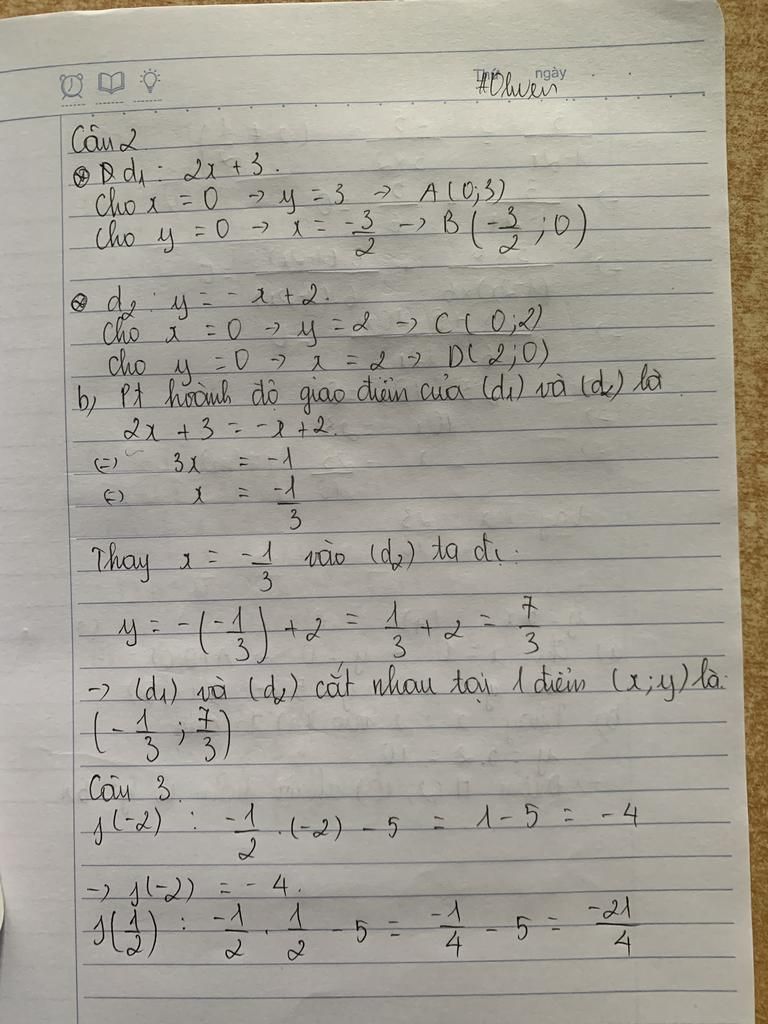 Thứ ngày
#Dhuen
Câu 2
⊗ D d₁ : 2x + 3.
Cho x = 0 → y = 3 → A (0;3)
Cho y = 0 → x = -3/2 → B (-3/2 ; 0)
⊗ d₂ : y = -x + 2.
Cho x = 0 → y = 2 → C ( 0;2)
Cho y = 0 → x = 2 → D( 2;0)
b, Pt hoành độ giao điểm của (d₁) và (d₂) là
2x + 3 = -x + 2.
(=) 3x = -1
(=) x = -1/3
Thay x = -1/3 vào (d₂) ta đ.:
y = -(-1/3) + 2 = 1/3 + 2 = 7/3
→ (d₁) và (d₂) cắt nhau tại 1 điểm (x;y) là:
(-1/3 ; 7/3)
Câu 3.
f(-2) : -1/2 . (-2) - 5 = 1 - 5 = -4
→ f(-2) = -4.
f(1/2) : -1/2 . 1/2 - 5 = -1/4 - 5 = -21/4